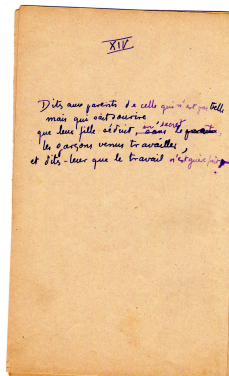 XIV
Dits aux parents de celle qui n'est pas belle
mais qui sait sourire
que leur fille séduit, en secret,
les garçons venus travailler,
et dits-leur que le travail n'est guère